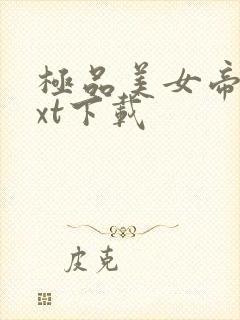 極品美女帝
xt下載
皮克